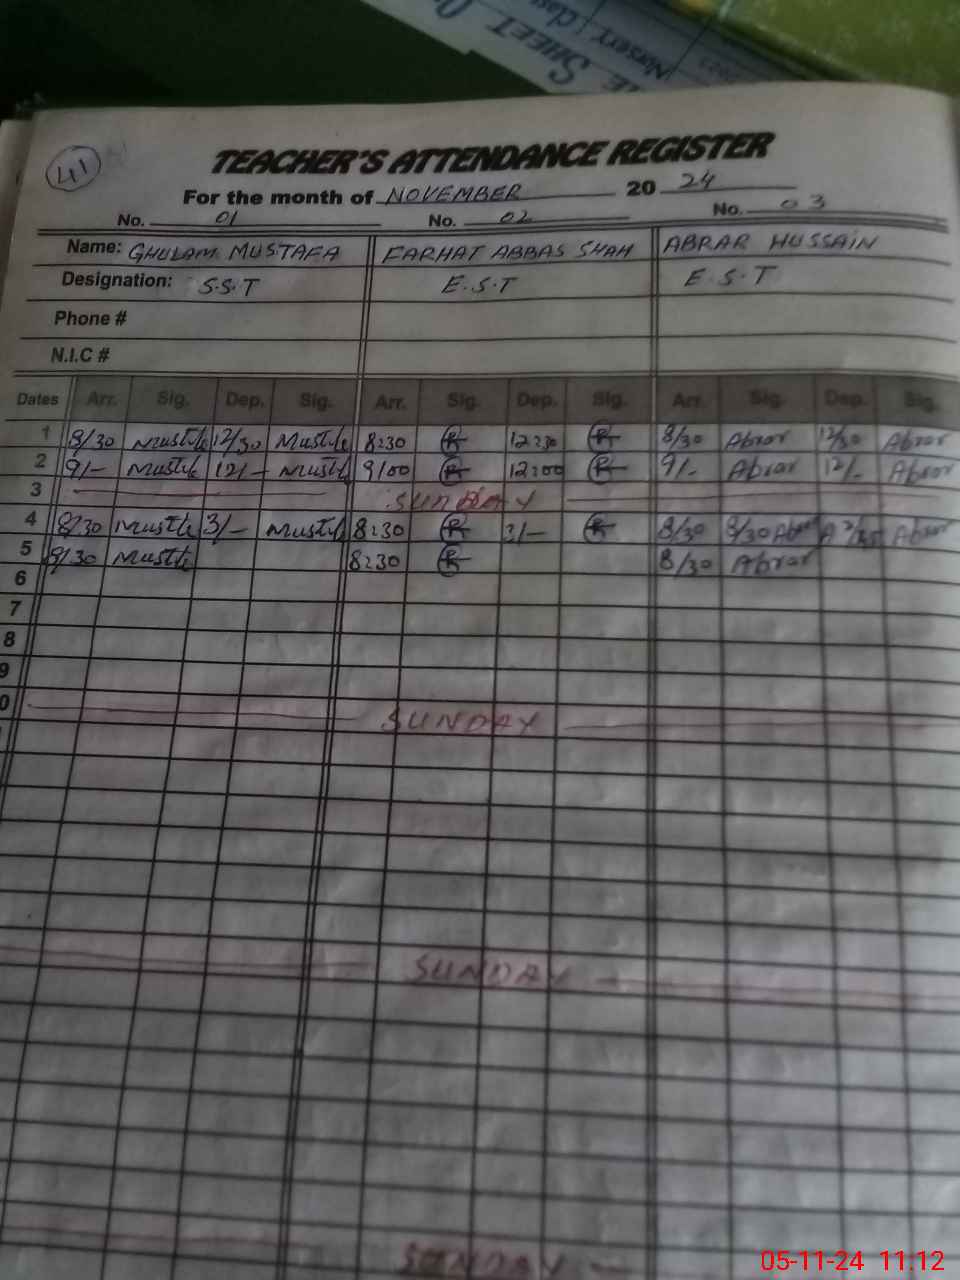 SHEET
Nursery Class
41
TEACHER'S ATTENDANCE REGISTER
For the month of NOVEMBER 20 24
No. 01 No. 02 No. 03
Name: GHULAM MUSTAFA FARHAT ABBAS SHAH ABRAR HUSSAIN
Designation: S.S.T E.S.T E.S.T
Phone #
N.I.C #
Dates Arr. Sig. Dep. Sig. Arr. Sig. Dep. Sig. Arr. Sig. Dep. Sig.
1 8/30 12/30 8:30 12:30 8/30 Abrar 12/30 Abrar
2 9/- 12/- 9/00 12:00 9/- Abrar 12/- Abrar
3 SUNDAY
4 8/30 3/- 8:30 3/- 8/30 8/30 Abrar
5 8/30 8:30 8/30 Abrar
6
7
8
9
0 SUNDAY
SUNDAY
SUNDAY
05-11-24 11:12